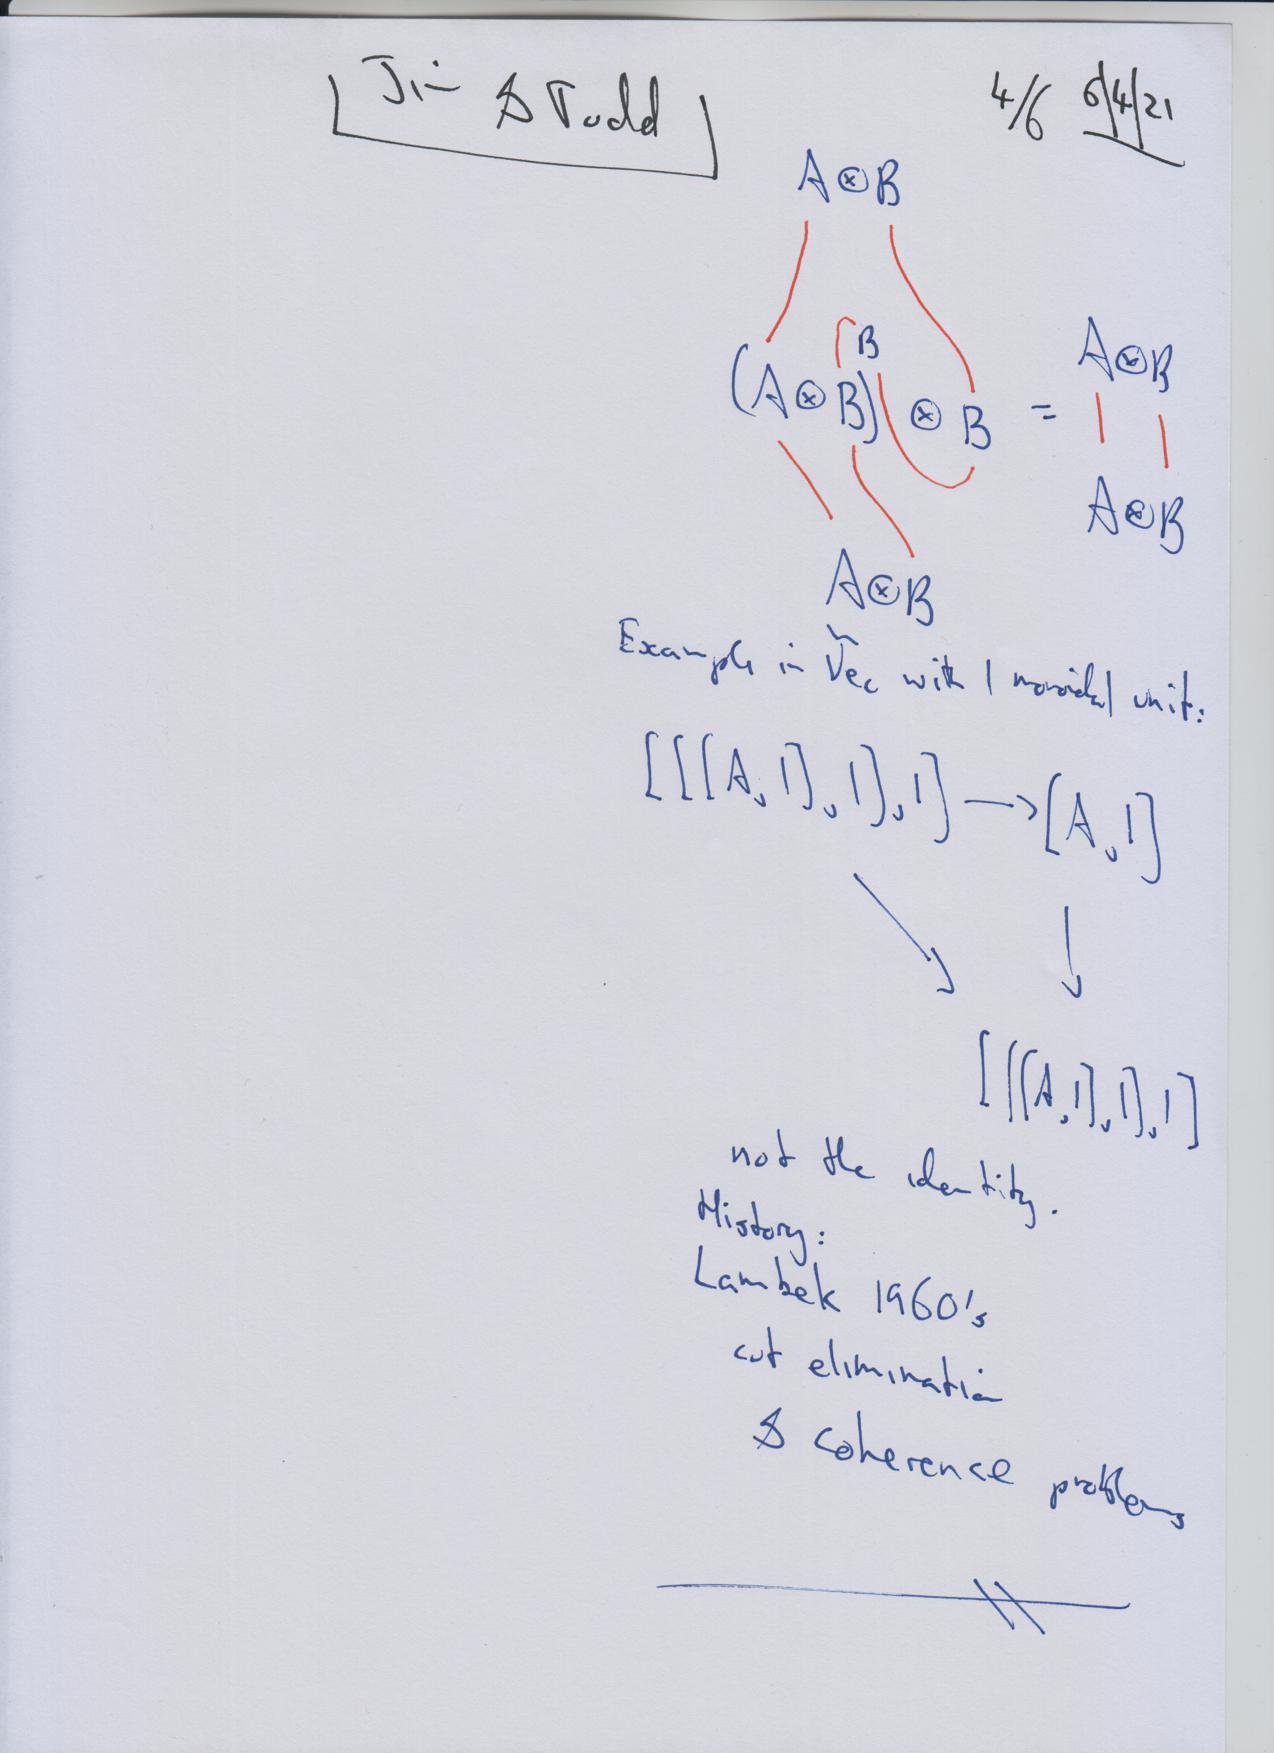 Jim & Todd
4/6 6/4/21
A⊗B
B
(A⊗B) ⊗ B = A⊗B
A⊗B
A⊗B
Example in Vec with 1 monoidal unit:
[[[A,1],1],1] → [A,1]
[[[A,1],1],1]
not the identity.
History:
Lambek 1960's
cut elimination
& coherence problems